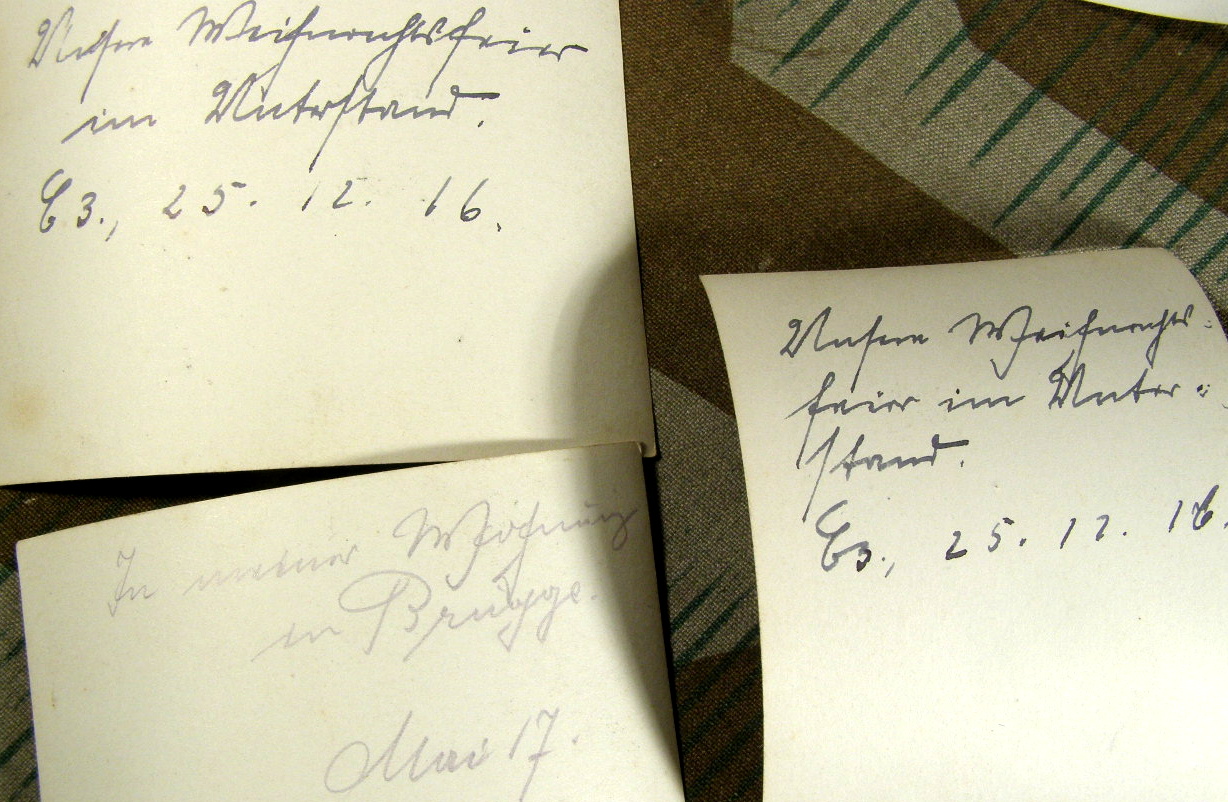 Unsere Weihnachtsfeier
im Unterstand.
E3., 25. 12. 16.
In meiner Wohnung
in Brügge.
Mai 17.
Unsere Weihnachts-
feier im Unter-
stand.
E3., 25. 12. 16.